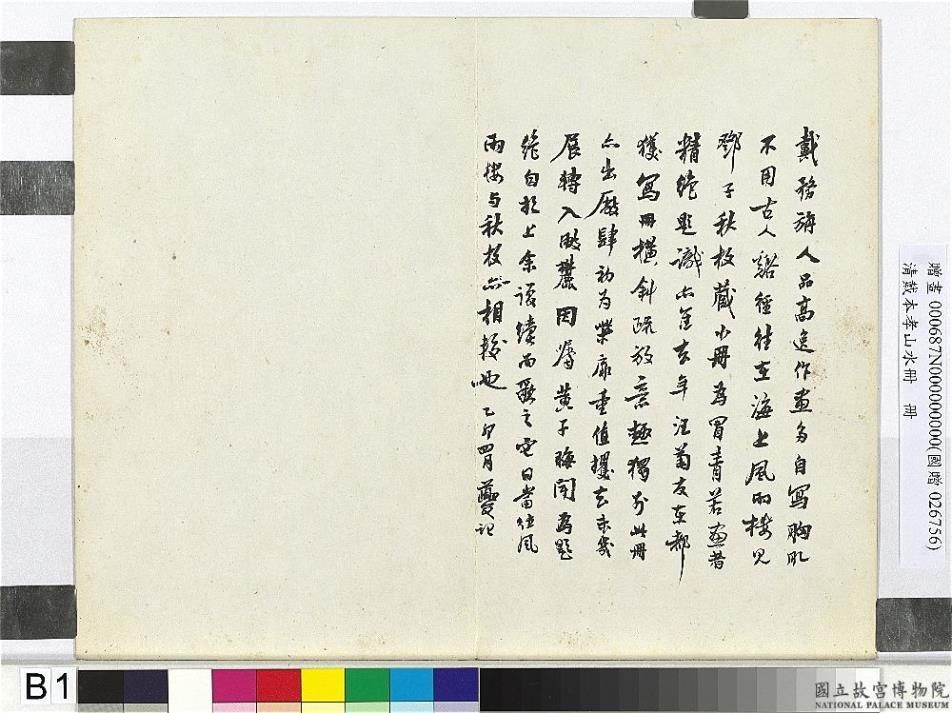 戴務旃人品高逸作畫多自寫胸肊
不用古人谿徑往在海上風雨樓見
鄧子秋枚藏小冊為冒青若畫者
精絶題識亦佳去年江菊友東都
獲寫冊橫斜疏放意趣獨別此冊
亦出廠肆初為 重值攫去未幾
展轉入 因屬黃子晦聞為題
絶句於上余復續而 之它日當値風
雨樓與秋枚 相校也 乙卯四月 記
贈畫 000687N000000000(國贈 026756)
清戴本孝山水冊 冊
B1
國立故宮博物院
NATIONAL PALACE MUSEUM